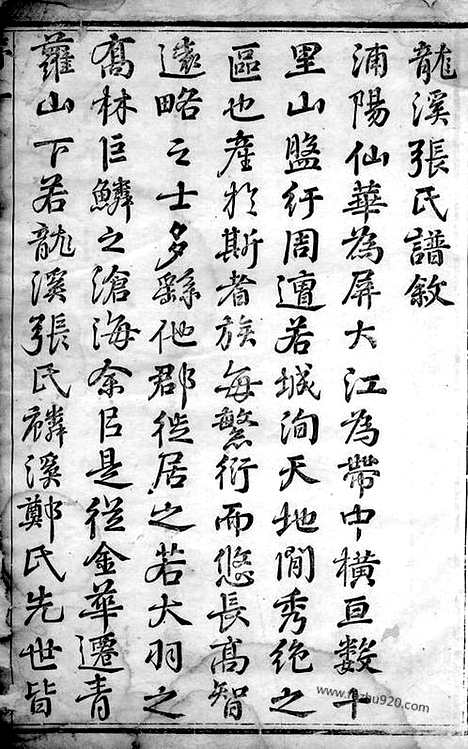 龍溪張氏譜敘
浦陽仙華為屏大江為帶中橫亘數十
里山盤紆周遭若城洵天地間秀絕之
區也產於斯者族每繁衍而悠長高智
遠略之士多繇他郡徙居之若大羽之
喬林巨鱗之滄海余以是從金華遷青
蘿山下若龍溪張氏麟溪鄭氏先世皆